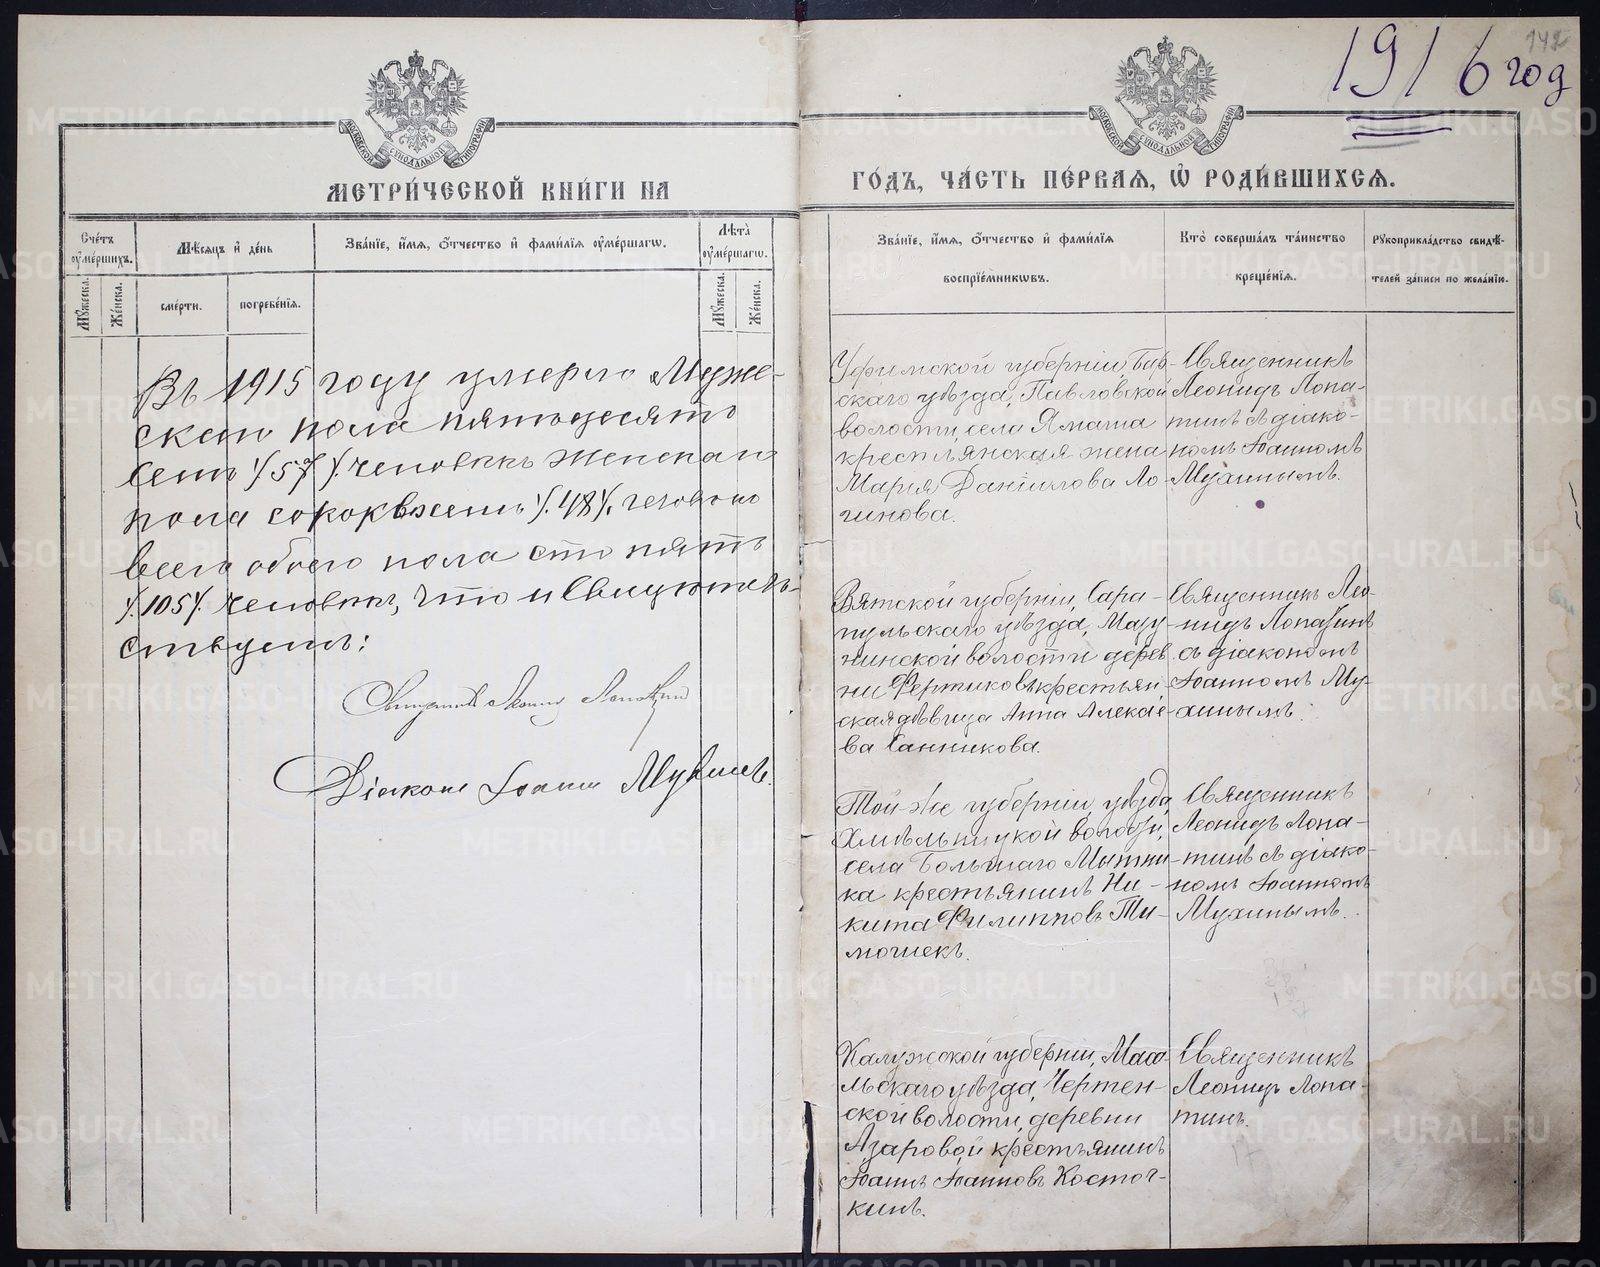 142
1916 год
МОСКОВСКОЙ СѴНОДАЛЬНОЙ ТИПОГРАФІИ
МЕТРИ́ЧЕСКОЙ КНИ́ГИ НА
Сче́тъ ᲂу҆ме́ршихъ.
Мѣ́сяцъ и҆ де́нь
Зва́нїе, и҆́мѧ, ѻ҆́тчество и҆ фами́лїѧ ᲂу҆ме́ршагѡ.
Лѣта̀ ᲂу҆ме́ршагѡ.
Мꙋ́жеска.
Же́нска.
сме́рти.
погребе́нїѧ.
Мꙋ́жеска.
Же́нска.
Въ 1915 году умерло Муже-
скаго пола пятьдесятъ
семь /57/ человѣкъ женскаго
пола сорокъ восемь /48/ человѣкъ
всего обоего пола сто пять
/105/ человѣкъ, что и свидѣтель-
ствуемъ:
Священникъ Леонидъ Лопатинъ
Діаконъ Іоаннъ Мухинъ.
МОСКОВСКОЙ СѴНОДАЛЬНОЙ ТИПОГРАФІИ
ГО́ДЪ, ЧА́СТЬ ПЕ́РВАѦ, Ѡ҆ РОДИ́ВШИХСѦ.
Зва́нїе, и҆́мѧ, ѻ҆́тчество и҆ фами́лїѧ
воспрїе́мникѡвъ.
Кто̀ соверша́лъ та́инство
креще́нїѧ.
Рꙋкоприкла́дство свидѣ́-
телей за́писи по жела́нїю.
Уфимской губерніи, Бир-
скаго уѣзда, Павловской
волости, села Ямаша
крестьянская жена
Марія Даніилова Ло-
гинова.
Священникъ
Леонидъ Лопа-
тинъ съ діако-
номъ Іоанномъ
Мухинымъ.
Вятской губерніи, Сара-
пульскаго уѣзда, Мазу-
нинской волости дерев-
ни Фертиковъ крестьян-
ская дѣвица Анна Алексѣе-
ва Санникова.
Священникъ Лео-
нидъ Лопатинъ
съ діакономъ
Іоанномъ Му-
хинымъ.
Той-же губерніи уѣзда,
Хмѣльницкой волости,
села Большаго Мытни-
ка крестьянинъ Ни-
кита Филипповъ Ти-
мошекъ.
Священникъ
Леонидъ Лопа-
тинъ съ діако-
номъ Іоанномъ
Мухинымъ.
Калужской губерніи, Маса-
льскаго уѣзда, Чертен-
ской волости, деревни
Азаровой крестьянинъ
Іоаннъ Іоанновъ Косточ-
кинъ.
Священникъ
Леонидъ Лопа-
тинъ.
METRIKI.GASO-URAL.RU